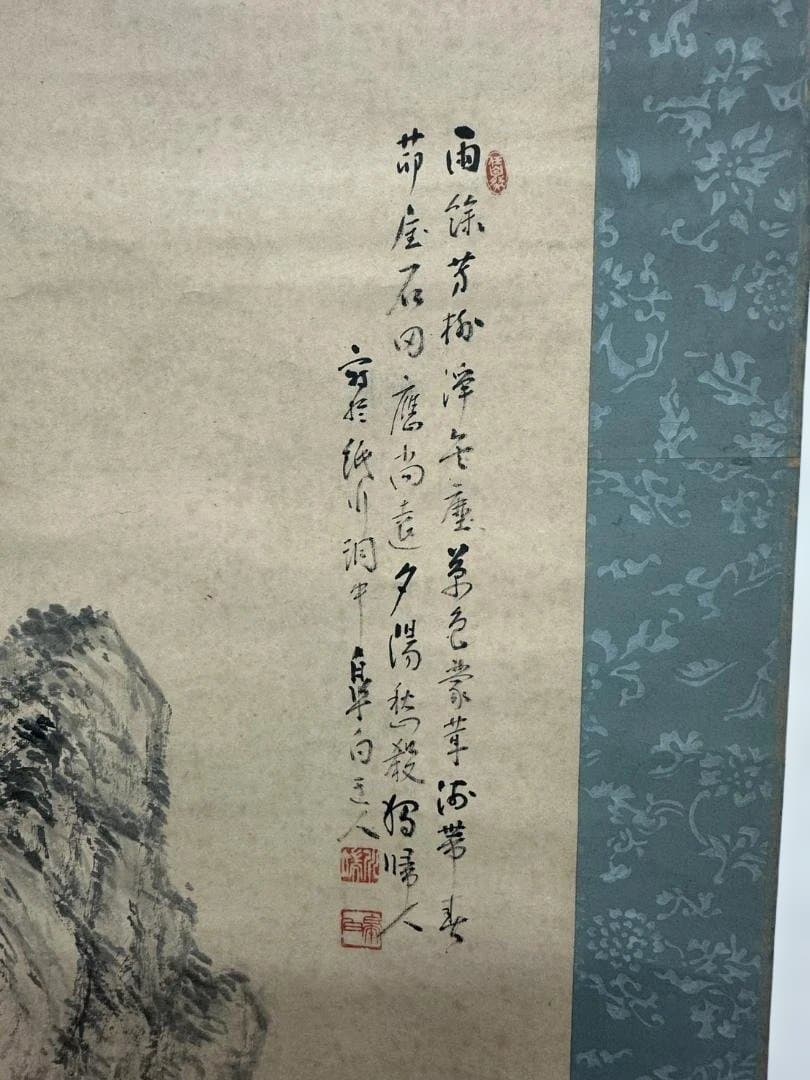 雨餘芳樹淨無塵草色蒙茸帶春
茆屋石田應尚遠夕陽愁殺獨歸人
寫於紙川洞中皐白道人